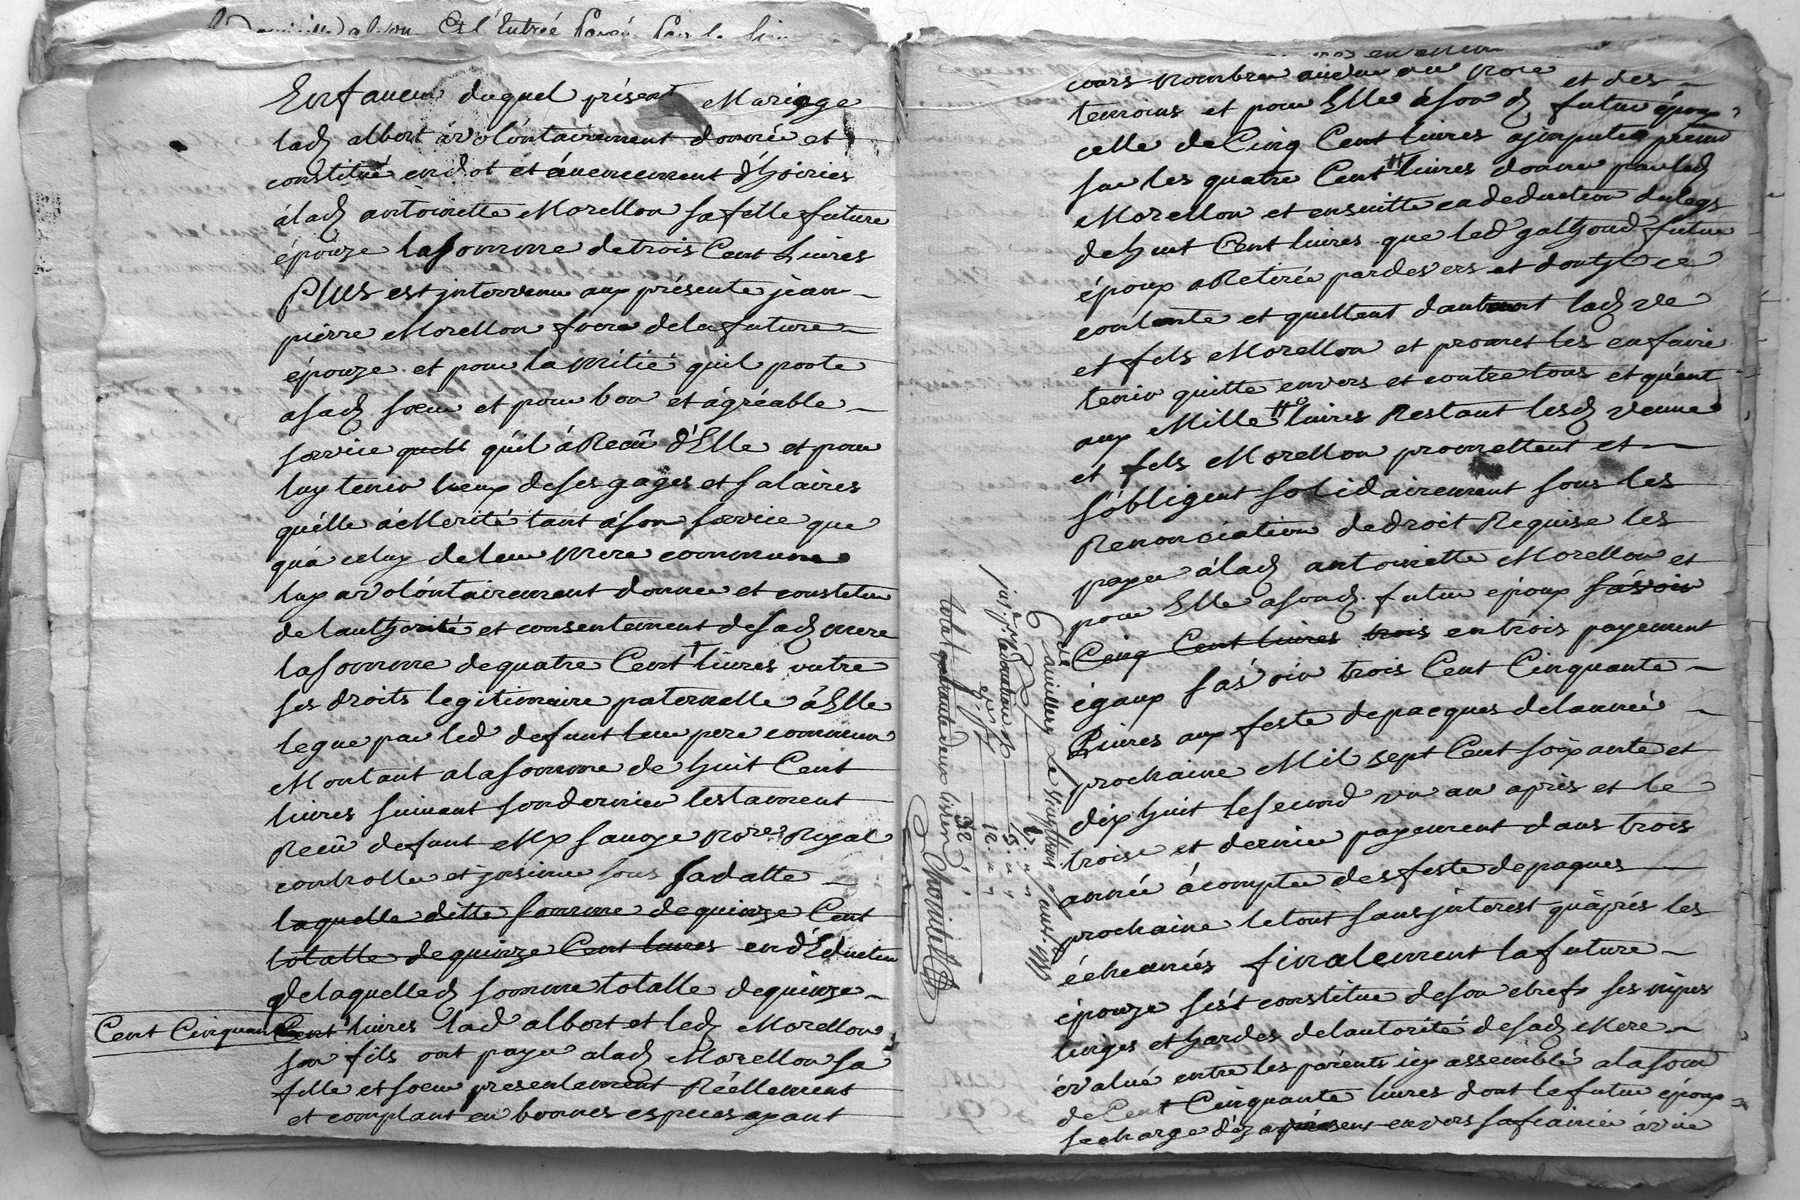 Domicille a Lyon Est l'Entrée
Enfaveur duquel présent Mariage
lad. albert a volontairement donnée et
constitué endot et avencement d'hoiries
álad. antoinette Morellon sa fille future
épouze lasomme detrois Cent Livres
PlUS est jntervenu aux présente jean
pierre Morellon frere delafuture
épouze et pour la mitié quil porte
asad. soeur et pour bon et ágréable
service quil á Recüi d'Elle et pour
luy tenir lieux deses gages et salaires
quélle á Merité tant áson service que
quá celuy deleur mere commune
luy a volontairement donnée et constitue
delauthorité et consentement desad. mere
lasomme dequatre Cent livres outre
ses droits legitimaire paternelle á Elle
legue par led. defunt leur pere commun
Montant alasomme de huit Cent
livres suivant sondernier testament
Recü defunt Mx sauoye nore Royal
controlle et jnsinue sous sadatte
laquelle ditte somme dequinze Cent
totalle dequinze Cent livres en d'Eduction
delaquelled. somme totalle dequinze
Cent Cinquante
Cent livres lad. albert et led. Morellon
son fils ont payer alad. Morellon sa
fille et soeur presentement Réellement
et comptant en bonnes especes ayant
cours nombreé et des
temoins et pour Elle áson d. futur époux
celle deCinq Cent livres ajmputer
sur les quatre Cent livres donné par led.
Morellon et ensuitte endeduction dulegs
dehuit Cent livres que led. galhond futur
époux a Retirée pardevers et dont
contente et quittent dautant lad. ve
et fils Morellon et promet les enfaire
tenir quitte envers et contre tous et quént
aux Mille livres Restant lesd. veuve
et fils Morellon promettent et
s'obligent solidairement sous les
Renonciation dedroit Requise les
payer álad. antoinette Morellon et
pour Elle asond. futur époux sávoir
Cinq Cent livres trois entrois payement
égaux sáv oir trois Cent Cinquante
Livres aux feste depacques delannée
prochaine Mil sept Cent soixante et
dix huit lesecond un an après et le
troise et dernier payement dans trois
année ácompter desfeste depaques
prochaine letout sans jnterest quáprés les
écheancés finalement lafuture
épouze sést constitue deson chefs ses nipes
linges et hardes delautorité desad. Mere
évalué entre les parents icy assemblé alasom
deCent Cinquante livres dont lefutur époux
secharge dez apresent envers safiancée ávie